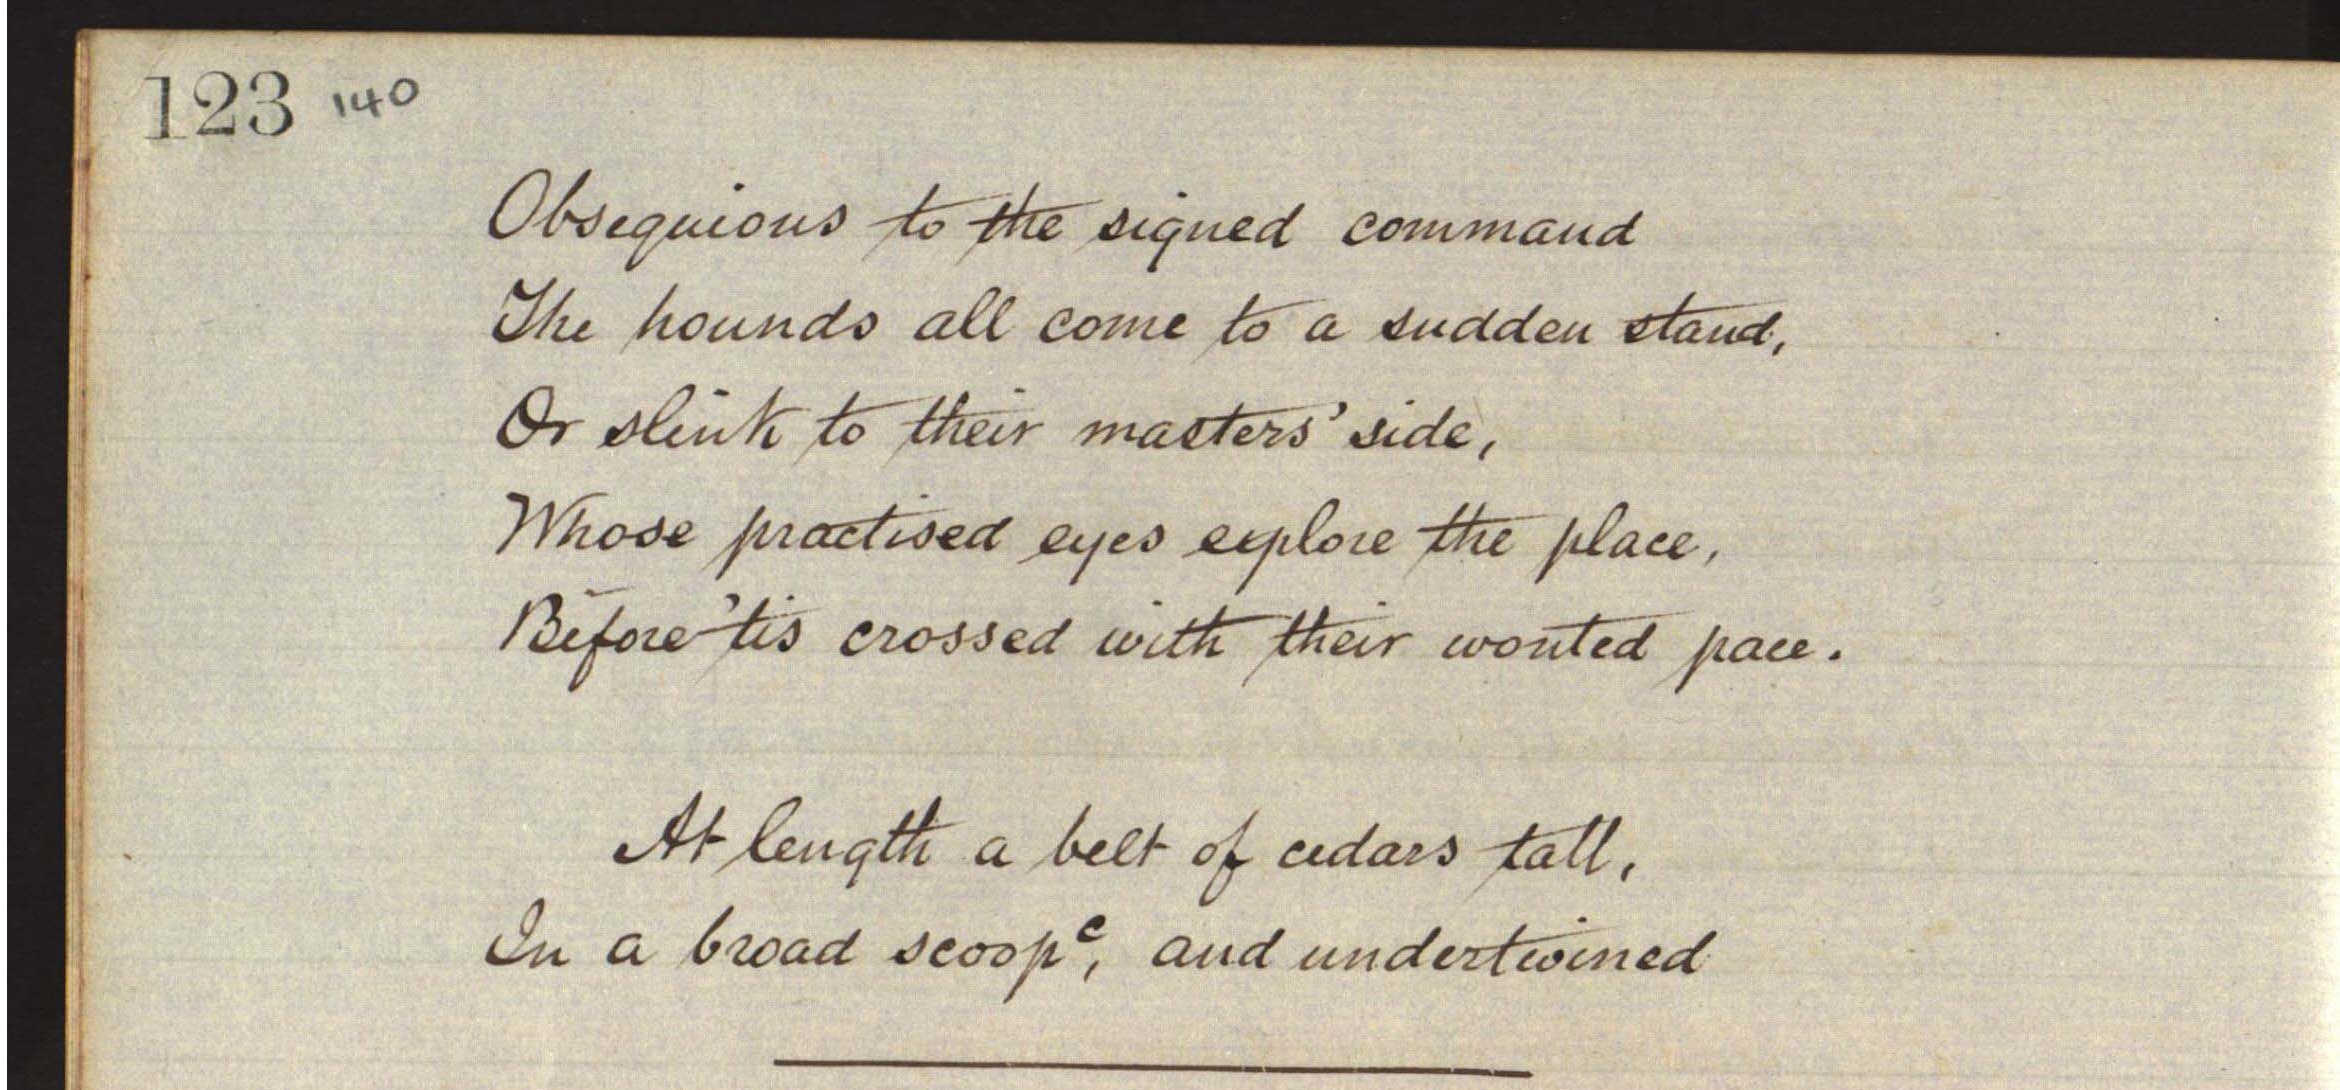 123 140
Obsequious to the signed command
The hounds all come to a sudden stand,
Or slink to their masters' side,
Whose practised eyes explore the place,
Before 'tis crossed with their wonted pace.
At length a belt of cedars tall,
In a broad scoop c, and undertwined